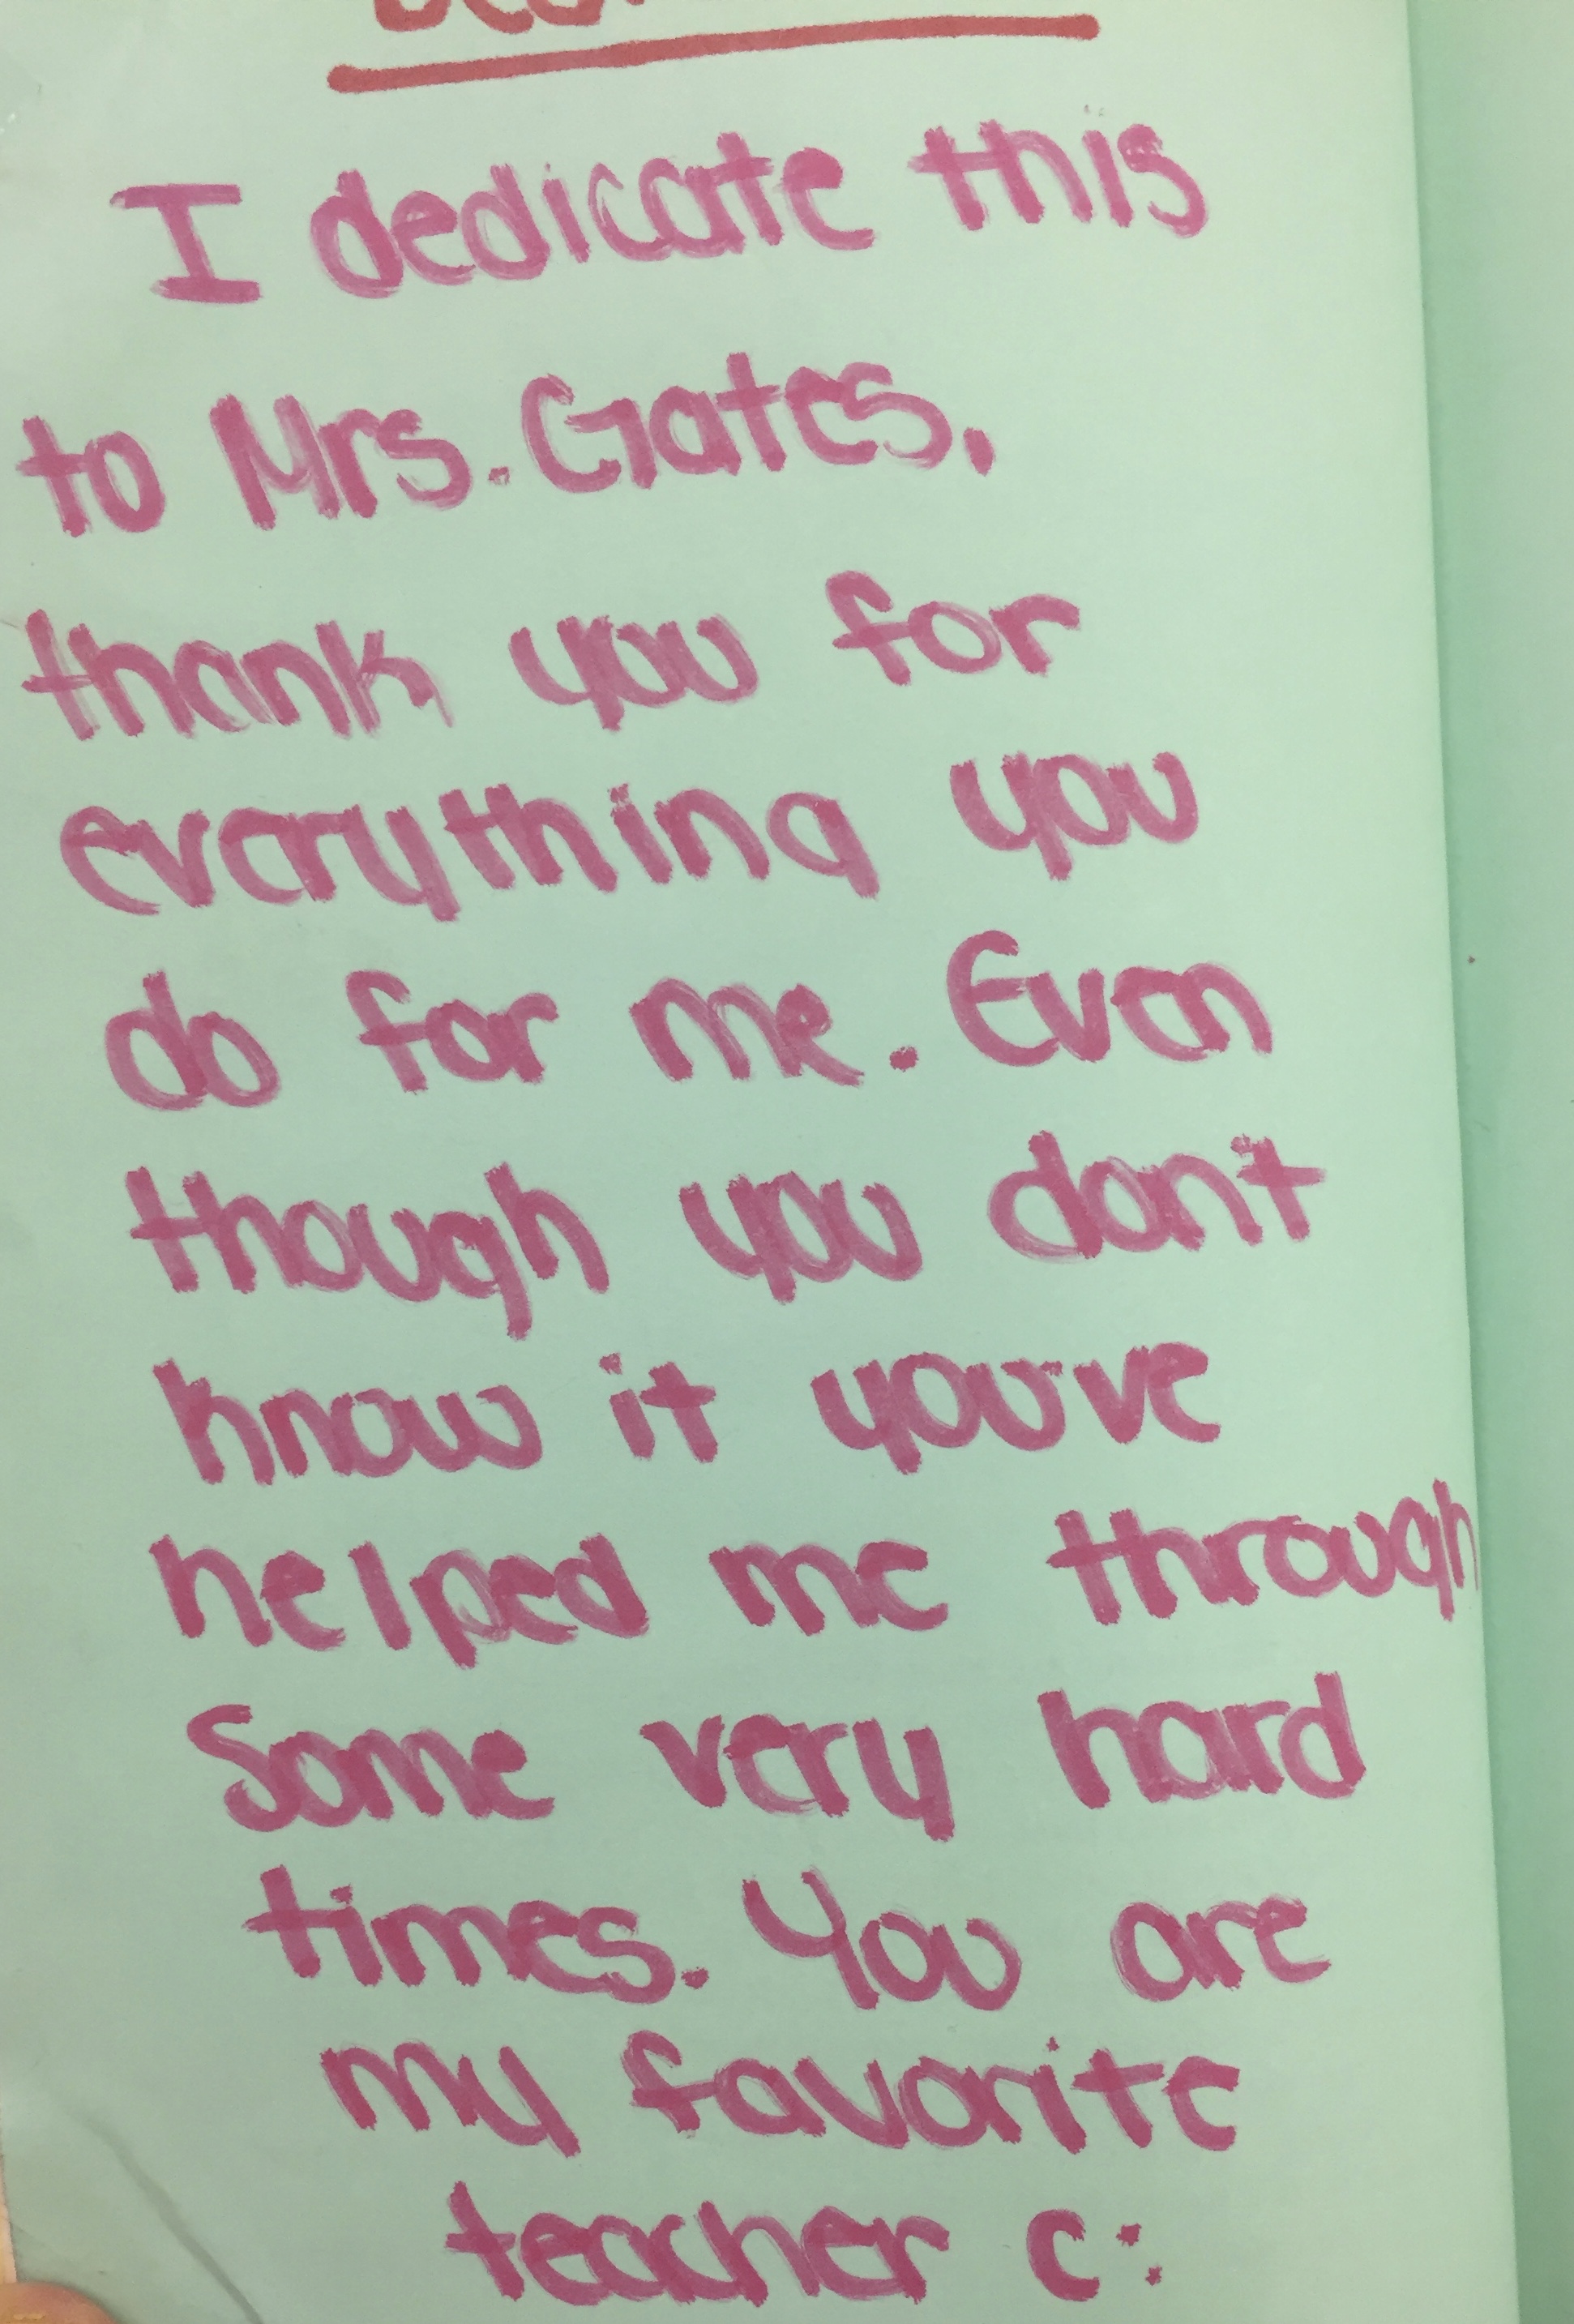 I dedicate this
to Mrs. Gates,
thank you for
everything you
do for me. Even
though you dont
know it you've
helped me through
Some very hard
times. You are
my favorite
teacher c: